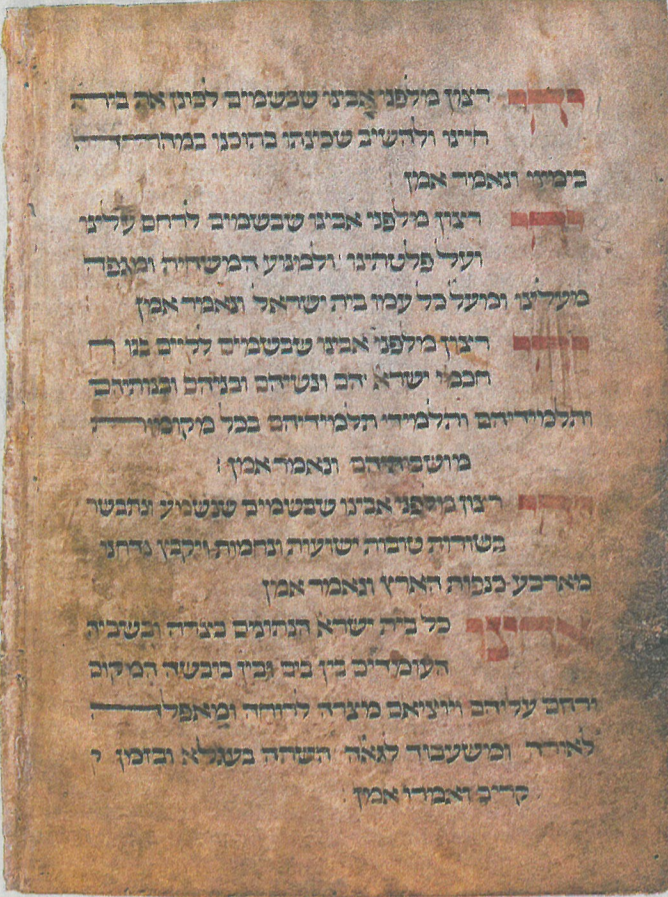 יהי רצון מלפני אבינו שבשמים לכונן את בית
חיינו ולהשיב שכינתו בתוכנו במהרה
בימינו ונאמר אמן
יהי רצון מלפני אבינו שבשמים לרחם עלינו
ועל פלטתינו ולמנוע המשחית ומגפה
מעלינו ומעל כל עמו בית ישראל ונאמר אמן
יהי רצון מלפני אבינו שבשמים לקיים בנו
חכמי ישרא הם ונשיהם ובניהם ובנותיהם
ותלמידיהם ותלמידי תלמידיהם בכל מקומות
מושבותיהם ונאמר אמן :
יהי רצון מלפני אבינו שבשמים שנשמע ונתבשר
בשורות טובות ישועות ונחמות ויקבץ נדחנו
מארבע כנפות הארץ ונאמר אמן
אחינו כל בית ישרא הנתונים בצרה ובשביה
העומדים בין בים ובין ביבשה המקום
ירחם עליהם ויוציאם מצרה לרוחה ומאפלה
לאורה ומשעבוד לגאלה השתה בעגלא ובזמן ק
קריב ואמרו אמן